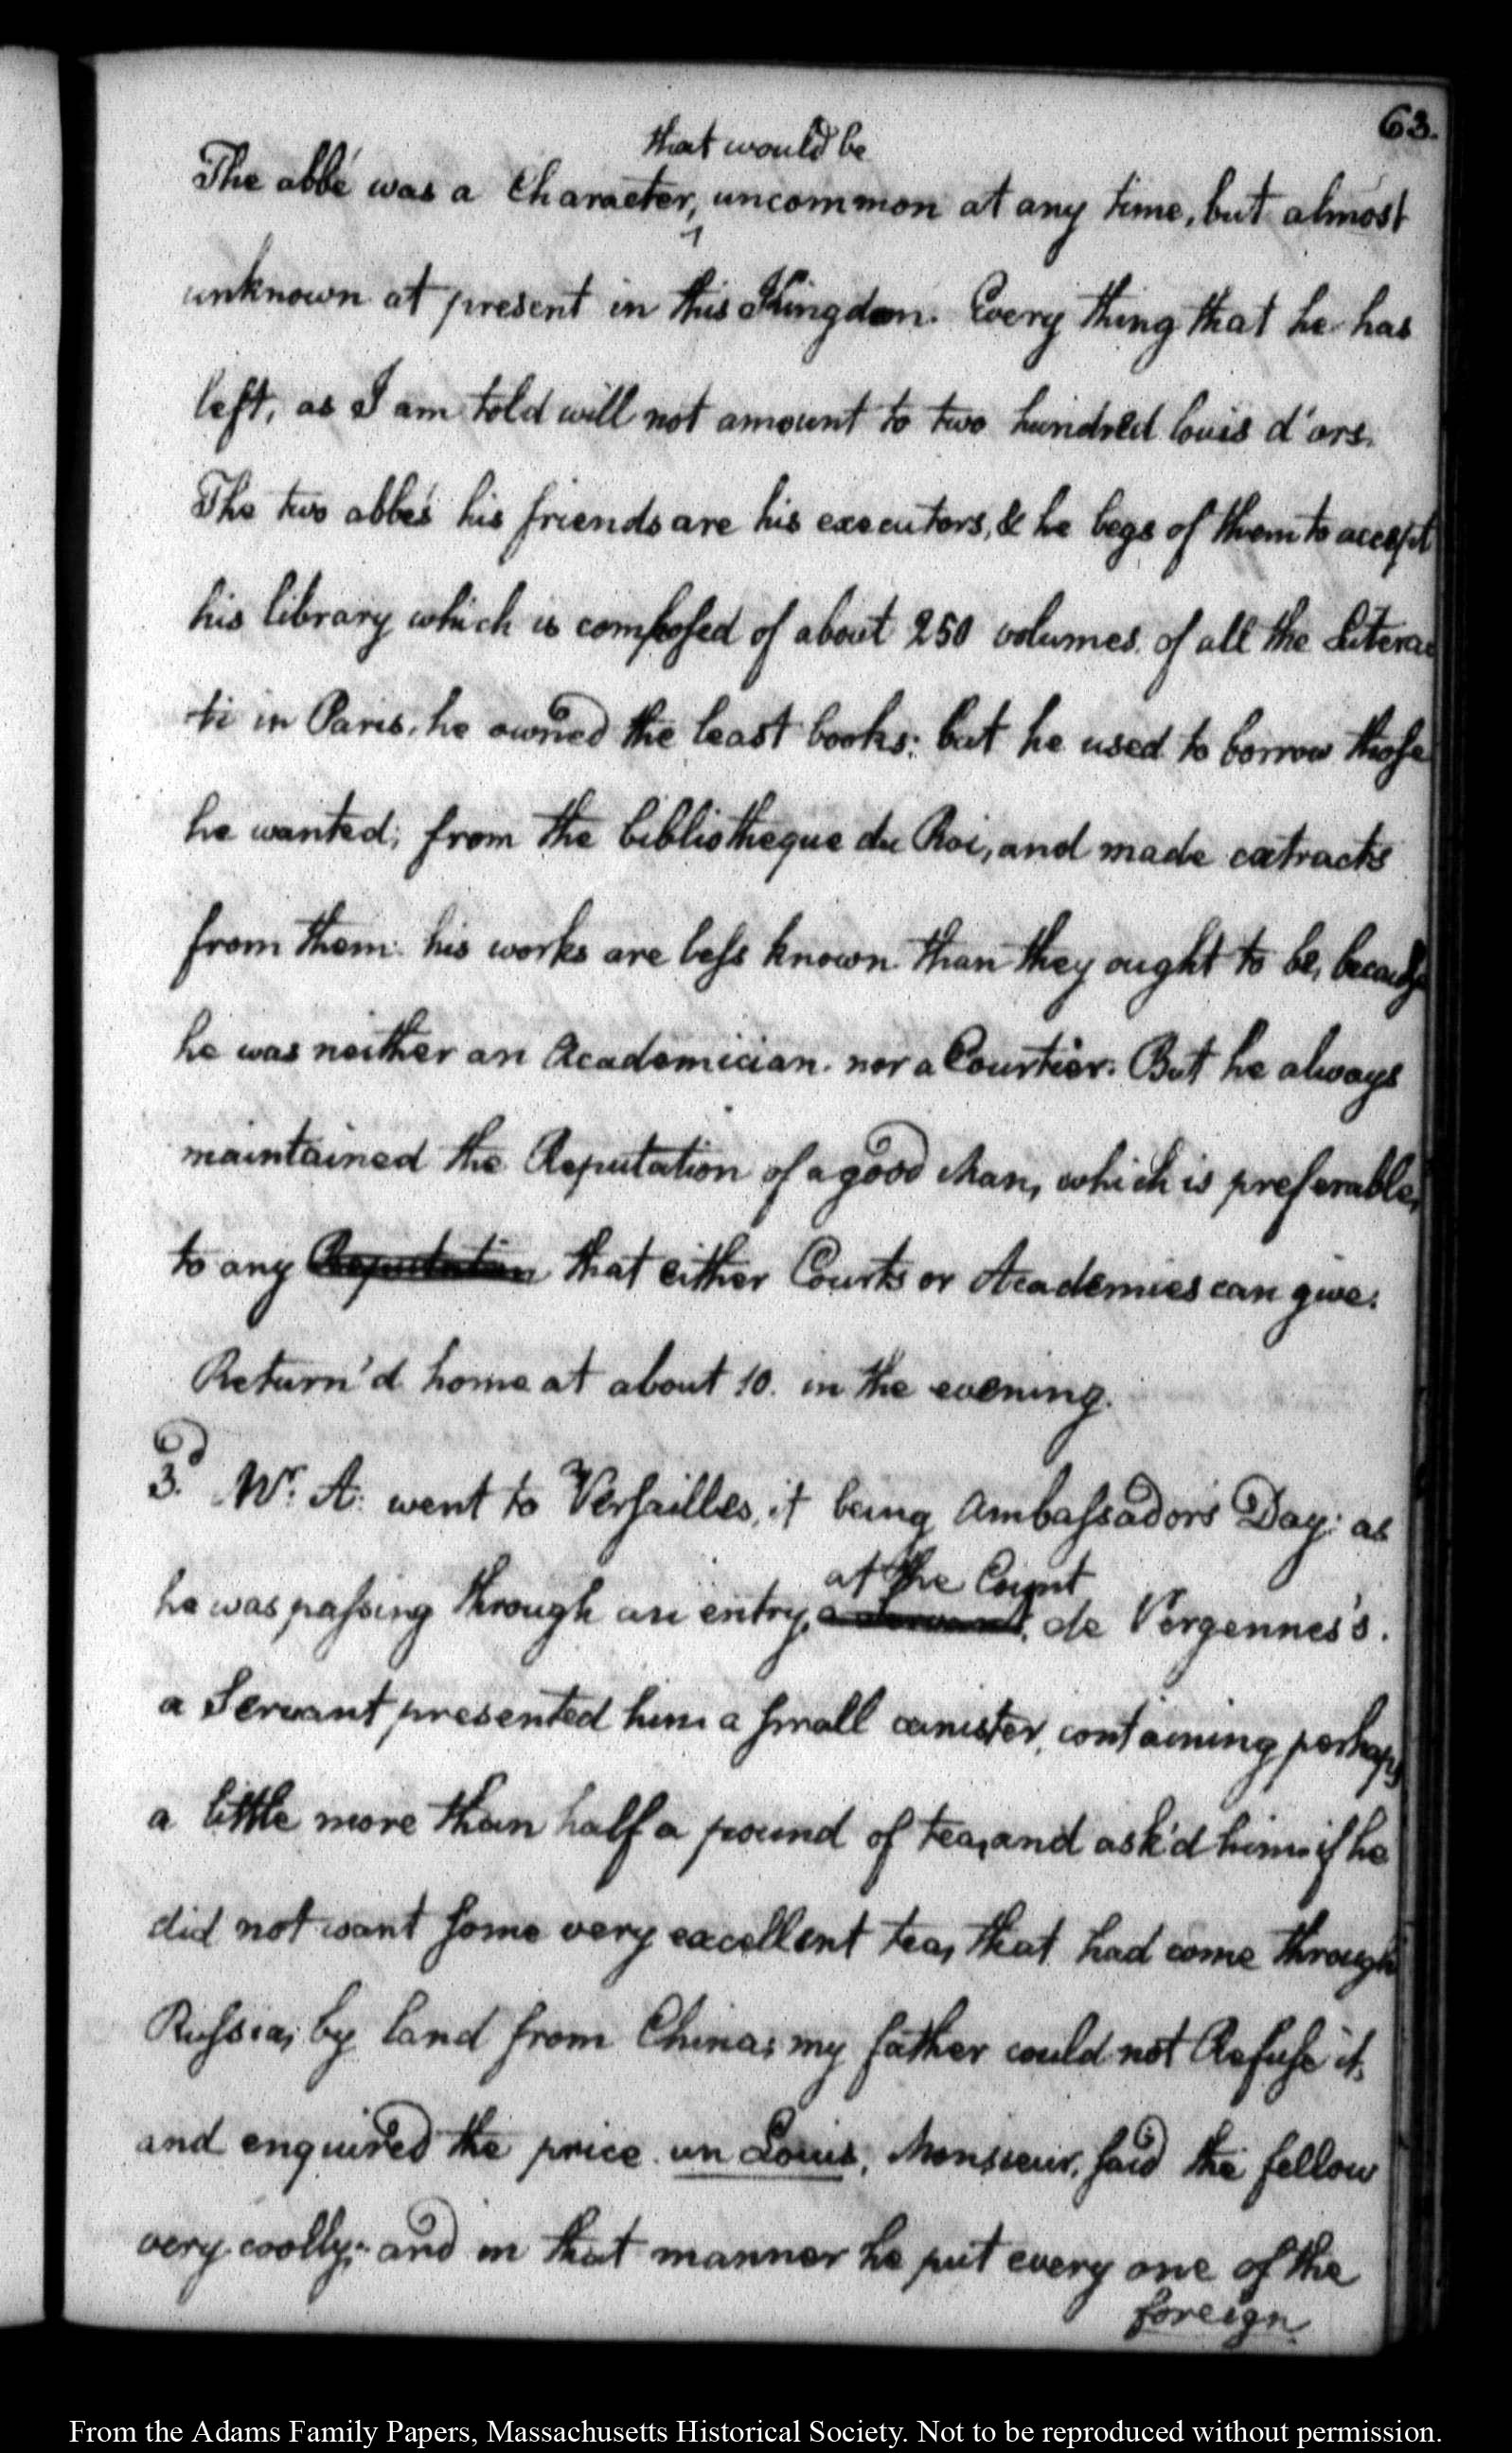 63.
that would be
The abbé was a Character, ^ uncommon at any time, but almost
unknown at present in this Kingdom. Every thing that he has
left, as I am told will not amount to two hundred louis d'ors.
The two abbés his friends are his executors, & he begs of them to accept
his library which is composed of about 250 volumes. of all the Litera
ti in Paris, he owned the least books: but he used to borrow those
he wanted; from the bibliotheque du Roi, and made extracts
from them: his works are less known than they ought to be, because
he was neither an Academician. nor a Courtier. But he always
maintained the Reputation of a good Man, which is preferable,
to any Reputation that either Courts or Academies can give.
Return'd home at about 10. in the evening.
3.d Mr. A. went to Versailles, it being Ambassadors Day: as
at the Count
he was passing through an entry, a Servant, de Vergennes's.
a Servant presented him a small canister, containing perhaps
a little more than half a pound of tea, and ask'd him if he
did not want some very excellent tea, that had come through
Russia, by land from China; my father could not Refuse it,
and enquired the price. un Louis, Monsieur, said the fellow
very coolly; and in that manner he put every one of the
foreign
From the Adams Family Papers, Massachusetts Historical Society. Not to be reproduced without permission.